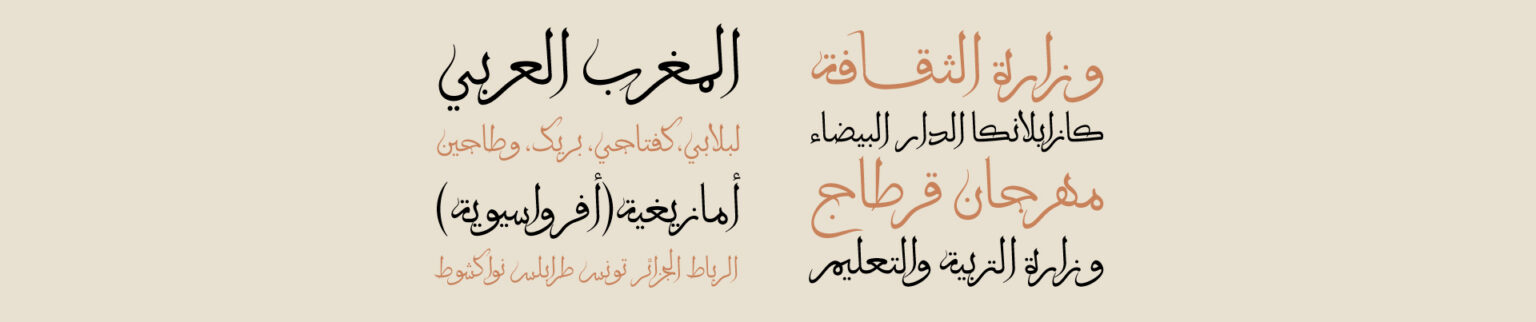 وزارة الثقافة
كازابلانكا الدار البيضاء
مهرجان قرطاج
وزارة التربية والتعليم
المغرب العربي
لبلابي، كفتاجي، بريك، وطاجين
أمازيغية (أفرواسيوية)
الرباط الجزائر تونس طرابلس نواكشوط